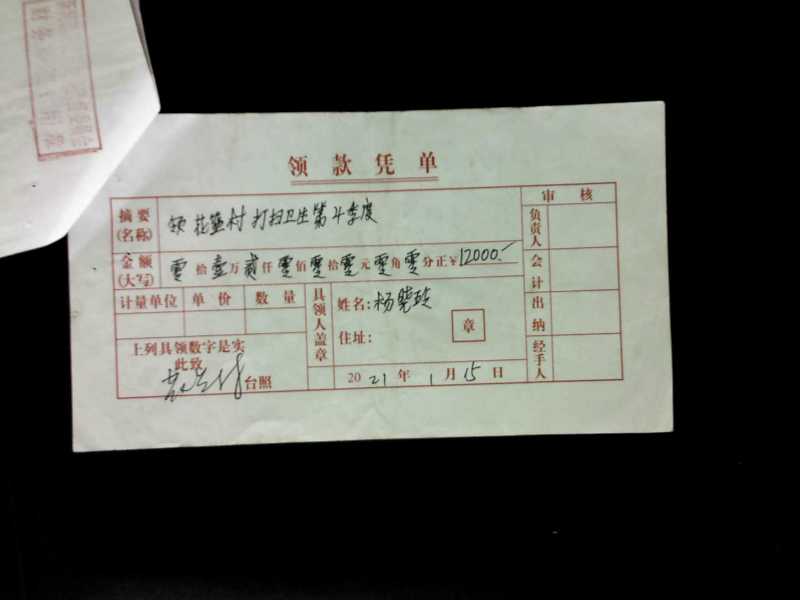 领款凭单
摘要(名称) 领花 村打扫卫生第4季度
金额(大写) 零拾壹万贰仟零佰零拾零元零角零分正¥12000.-
计量单位 单价 数量
上列具领数字是实
此致
台照
具领人盖章
姓名:杨晓
住址:
章
2021年1月15日
审核
负责人
会计
出纳
经手人